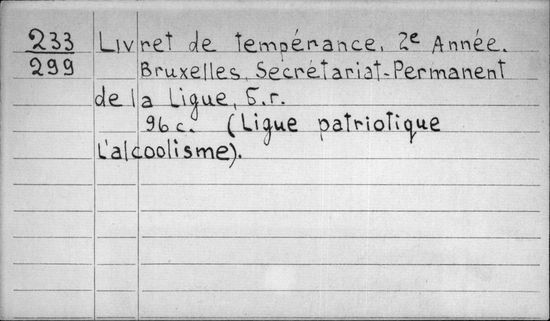 233 Livret de tempérance, 2e Année.
299 Bruxelles, Secrétariat-Permanent
de la Ligue, S.r.
96 c. (Ligue patriotique
L'alcoolisme).